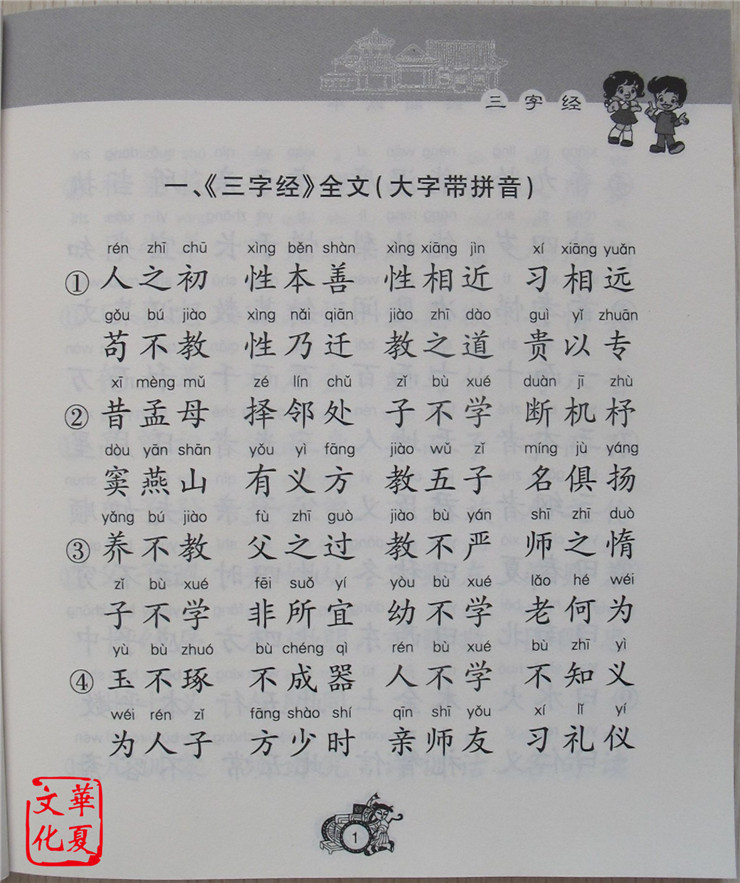 三字经
一、《三字经》全文(大字带拼音)
rén zhī chū xìng běn shàn xìng xiāng jìn xí xiāng yuǎn
①人之初 性本善 性相近 习相远
gǒu bú jiào xìng nǎi qiān jiào zhī dào guì yǐ zhuān
苟不教 性乃迁 教之道 贵以专
xī mèng mǔ zé lín chǔ zǐ bù xué duàn jī zhù
②昔孟母 择邻处 子不学 断机杼
dòu yān shān yǒu yì fāng jiào wǔ zǐ míng jù yáng
窦燕山 有义方 教五子 名俱扬
yǎng bú jiào fù zhī guò jiào bù yán shī zhī duò
③养不教 父之过 教不严 师之惰
zǐ bù xué fēi suǒ yí yòu bù xué lǎo hé wéi
子不学 非所宜 幼不学 老何为
yù bù zhuó bù chéng qì rén bù xué bù zhī yì
④玉不琢 不成器 人不学 不知义
wéi rén zǐ fāng shào shí qīn shī yǒu xí lǐ yí
为人子 方少时 亲师友 习礼仪
華夏
文化
1